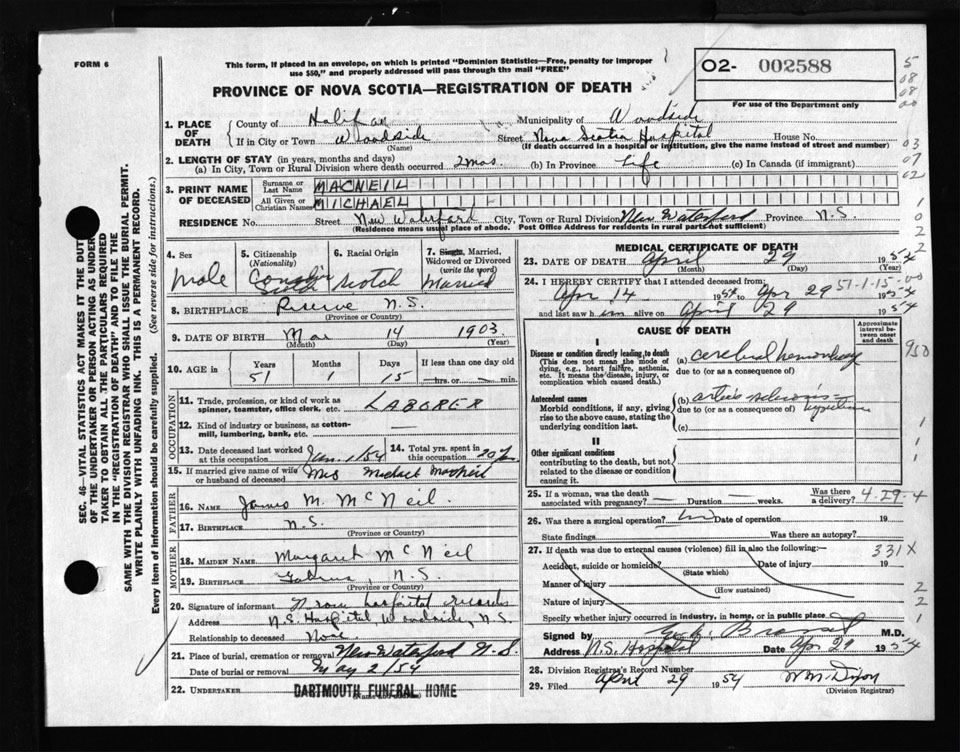 FORM 6
This form, if placed in an envelope, on which is printed "Dominion Statistics—Free, penalty for improper
use $50," and properly addressed will pass through the mail "FREE"
PROVINCE OF NOVA SCOTIA—REGISTRATION OF DEATH
02- 002588
For use of the Department only
5
08
08
00
03
07
02
1
0
2
2
1. PLACE OF DEATH
County of Halifax Municipality of Woodside
If in City or Town Woodside Street Nova Scotia Hospital House No.
(Name) (If death occurred in a hospital or institution, give the name instead of street and number)
2. LENGTH OF STAY (in years, months and days)
(a) In City, Town or Rural Division where death occurred 2 mos. (b) In Province Life (c) In Canada (if immigrant)
3. PRINT NAME OF DECEASED
Surname or Last Name MACNEIL
All Given or Christian Names MICHAEL
RESIDENCE No. Street New Waterford City, Town or Rural Division New Waterford Province N.S.
(Residence means usual place of abode. Post Office Address for residents in rural parts not sufficient)
4. Sex Male
5. Citizenship (Nationality) Canadian
6. Racial Origin Scotch
7. Single, Married, Widowed or Divorced (write the word) Married
8. BIRTHPLACE Reserve N.S.
(Province or Country)
9. DATE OF BIRTH Mar 14 1903
(Month) (Day) (Year)
10. AGE in Years Months Days If less than one day old
51 1 15 hrs. or min.
OCCUPATION
11. Trade, profession, or kind of work as
spinner, teamster, office clerk, etc. LABORER
12. Kind of industry or business, as cotton-
mill, lumbering, bank, etc.
13. Date deceased last worked at this occupation Jan. 1/54
14. Total yrs. spent in this occupation 20 y.
15. If married give name of wife or husband of deceased Mrs Michael MacNeil
FATHER
16. NAME James M. McNeil.
17. BIRTHPLACE N.S.
(Province or Country)
MOTHER
18. MAIDEN NAME Margaret McNeil
19. BIRTHPLACE Gabarus, N.S.
(Province or Country)
20. Signature of informant From hospital records
Address N.S. Hospital Woodside, N.S.
Relationship to deceased None
21. Place of burial, cremation or removal New Waterford N.S.
Date of burial or removal May 2/54
22. UNDERTAKER DARTMOUTH FUNERAL HOME
MEDICAL CERTIFICATE OF DEATH
23. DATE OF DEATH April 29 1954
(Month) (Day) (Year)
24. I HEREBY CERTIFY that I attended deceased from: 51-1-15
Apr 14 1954 to Apr 29 1954
and last saw him alive on April 29 1954
CAUSE OF DEATH
Approximate interval between onset and death
I
Disease or condition directly leading to death
(This does not mean the mode of dying, e.g., heart failure, asthenia, etc. It means the disease, injury, or complication which caused death.)
(a) cerebral hemorrhage
due to (or as a consequence of)
950
Antecedent causes
Morbid conditions, if any, giving rise to the above cause, stating the underlying condition last.
(b) arteriosclerosis - hypertension
due to (or as a consequence of)
(c)
1
1
II
Other significant conditions
contributing to the death, but not related to the disease or condition causing it.
25. If a woman, was the death associated with pregnancy? Duration weeks. Was there a delivery? 4-29-4
26. Was there a surgical operation? Date of operation 19
State findings Was there an autopsy?
27. If death was due to external causes (violence) fill in also the following:— 331X
Accident, suicide or homicide? Date of injury 19
(State which)
Manner of injury
(How sustained)
Nature of injury
2
2
1
Specify whether injury occurred in industry, in home, or in public place
Signed by M.D.
Address N.S. Hospital Date Apr 29 1954
28. Division Registrar's Record Number
29. Filed April 29 1954 W M Dixon
(Division Registrar)
SEC. 46—VITAL STATISTICS ACT MAKES IT THE DUTY
OF THE UNDERTAKER OR PERSON ACTING AS UNDER-
TAKER TO OBTAIN ALL THE PARTICULARS REQUIRED
IN THE "REGISTRATION OF DEATH" AND TO FILE THE
SAME WITH THE DIVISION REGISTRAR WHO SHALL ISSUE THE BURIAL PERMIT.
WRITE PLAINLY WITH UNFADING INK. THIS IS A PERMANENT RECORD.
Every item of information should be carefully supplied. (See reverse side for instructions.)